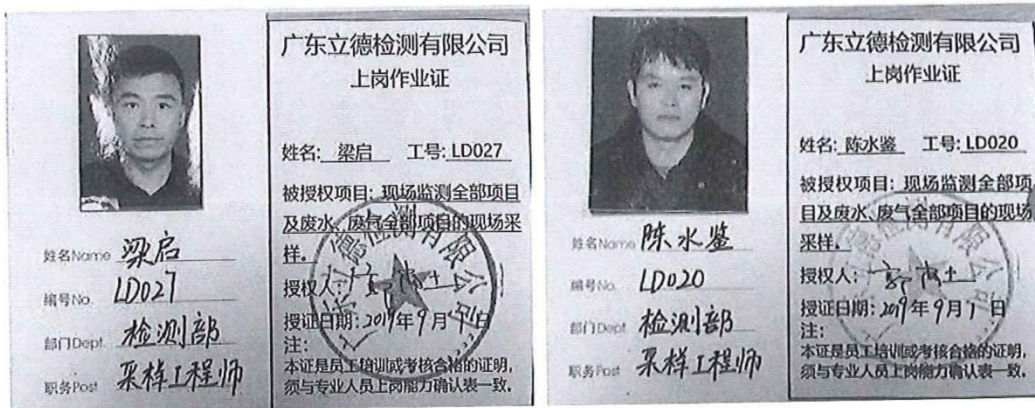 姓名Name 梁启
编号No. LD027
部门Dept. 检测部
职务Post 采样工程师
广东立德检测有限公司
上岗作业证
姓名: 梁启 工号: LD027
被授权项目: 现场监测全部项目
及废水、废气全部项目的现场采
样。
授权人:
授证日期: 2019年9月 日
注:
本证是员工培训或考核合格的证明,
须与专业人员上岗能力确认表一致。
姓名Name 陈水鉴
编号No. LD020
部门Dept. 检测部
职务Post 采样工程师
广东立德检测有限公司
上岗作业证
姓名: 陈水鉴 工号: LD020
被授权项目: 现场监测全部项
目及废水、废气全部项目的现场
采样。
授权人:
授证日期: 2019年9月1日
注:
本证是员工培训或考核合格的证明,
须与专业人员上岗能力确认表一致。